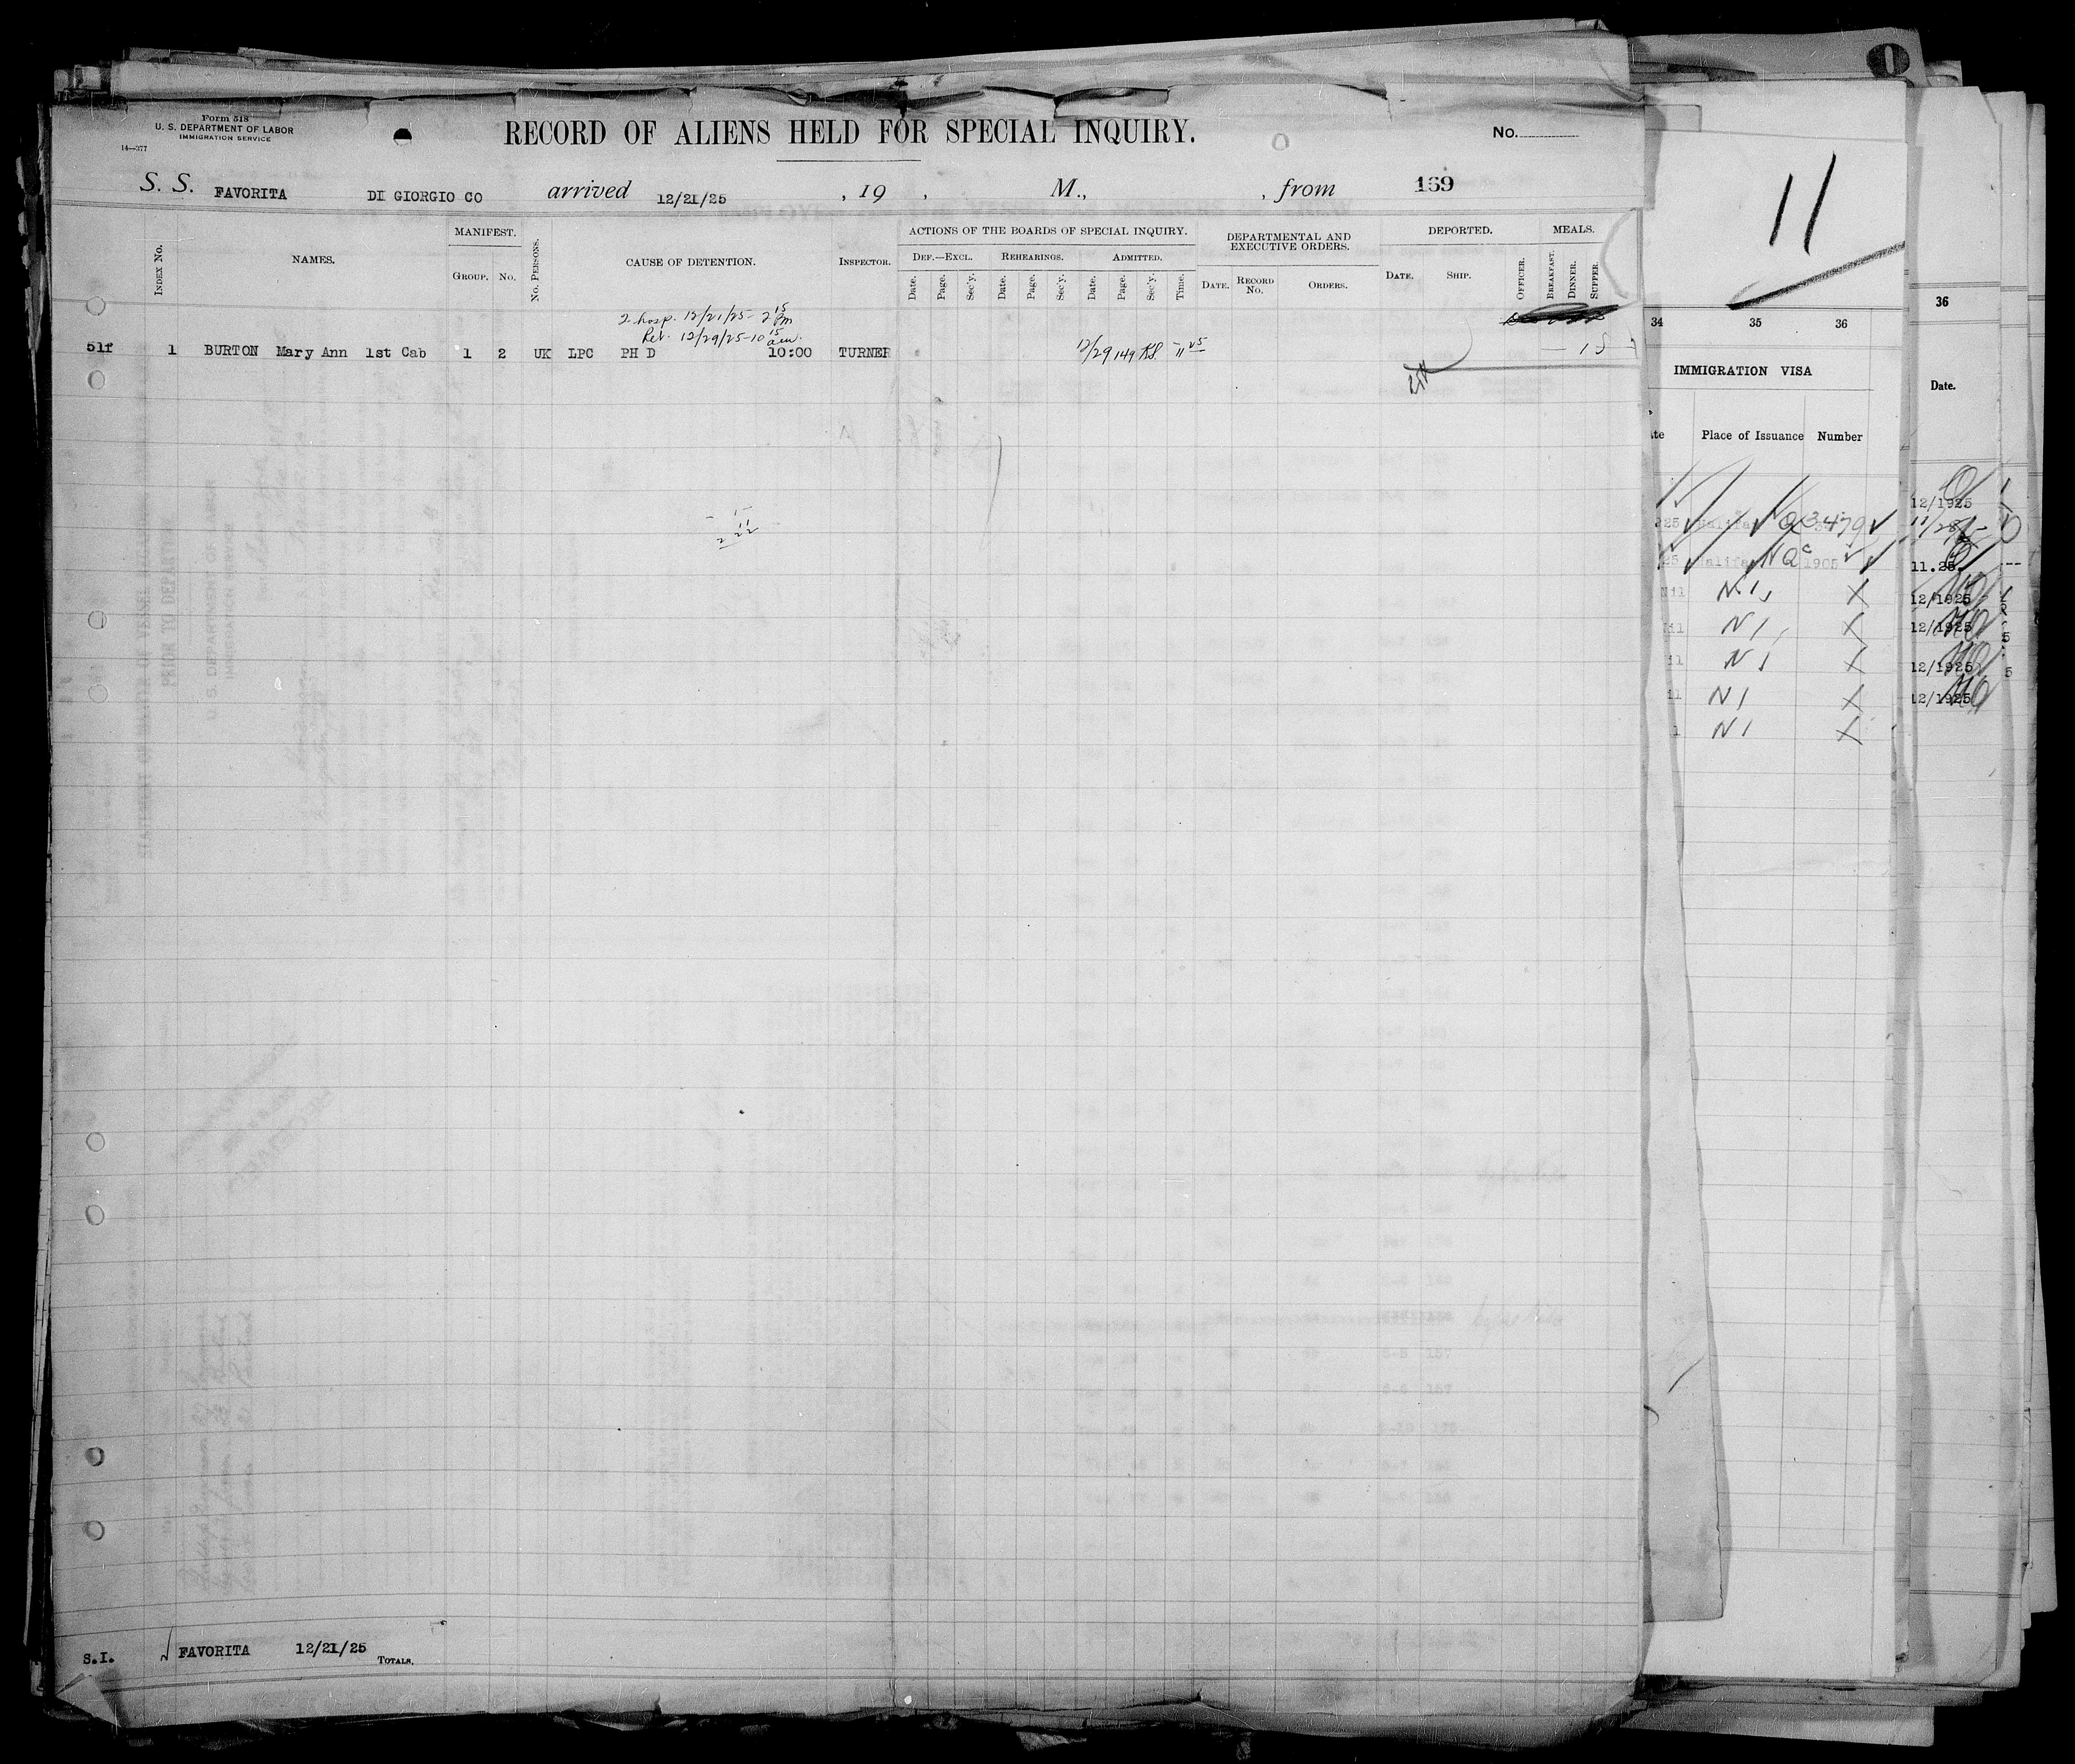 Form 518
U. S. DEPARTMENT OF LABOR
IMMIGRATION SERVICE
14—377
RECORD OF ALIENS HELD FOR SPECIAL INQUIRY.
No.
S. S. FAVORITA DI GIORGIO CO arrived 12/21/25 , 19 , M., , from 159
INDEX No.
NAMES.
MANIFEST.
GROUP. No.
No. PERSONS.
CAUSE OF DETENTION.
INSPECTOR.
ACTIONS OF THE BOARDS OF SPECIAL INQUIRY.
DEF.—EXCL. REHEARINGS. ADMITTED.
Date. Page. Sec'y. Date. Page. Sec'y. Date. Page. Sec'y. Time.
DEPARTMENTAL AND EXECUTIVE ORDERS.
DATE. RECORD No. ORDERS.
DEPORTED.
DATE. SHIP. OFFICER.
MEALS.
BREAKFAST. DINNER. SUPPER.
hosp. 12/21/25 - 2 15 Pm
Ret. 12/29/25 - 10 15 am.
51f 1 BURTON Mary Ann 1st Cab 1 2 UK LPC PH D 10:00 TURNER 12/29 149
S.I. FAVORITA 12/21/25 TOTALS.
11
34 35 36
IMMIGRATION VISA
Place of Issuance Number
3479
N1
N1
N1
N1
36
Date.
12/1925
11.25
12/1925
12/1925
12/1925
12/1925